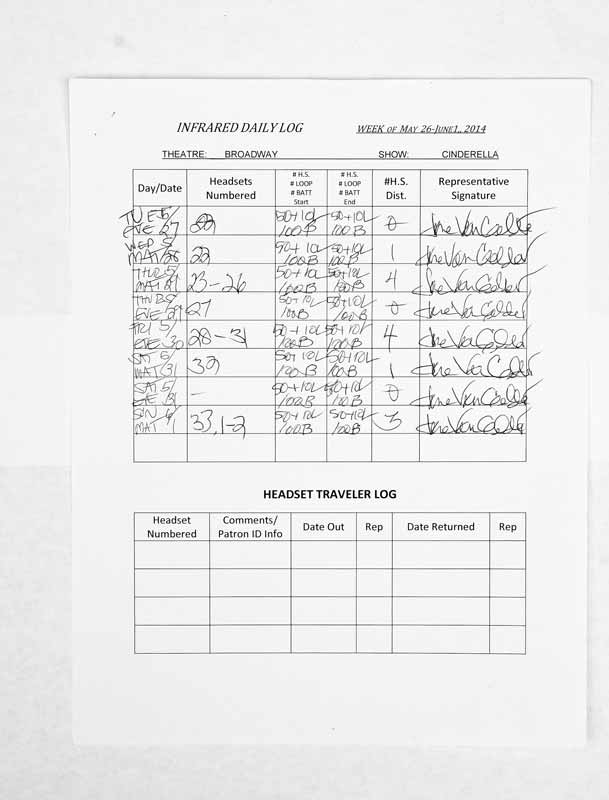 INFRARED DAILY LOG WEEK OF MAY 26-JUNE1,, 2014
THEATRE: BROADWAY SHOW: CINDERELLA
Day/Date Headsets Numbered # H.S. # LOOP # BATT Start # H.S. # LOOP # BATT End #H.S. Dist. Representative Signature
TUE 5/ EVE 27 22 50+10L 100B 50+10L 100B 0
WED 5/ MAT 28 22 50+10L 100B 50+10L 100B 1
THU 5/ MAT 29 23-26 50+10L 100B 50+10L 100B 4
THU 5/ EVE 29 27 50+10L 100B 50+10L 100B 0
FRI 5/ EVE 30 28-31 50+10L 100B 50+10L 100B 4
SAT 5/ MAT 31 32 50+10L 100B 50+10L 100B 1
SAT 5/ EVE 31 - 50+10L 100B 50+10L 100B 0
SUN 6/ MAT 1 33,1-2 50+10L 100B 50+10L 100B 3
HEADSET TRAVELER LOG
Headset Numbered Comments/ Patron ID Info Date Out Rep Date Returned Rep